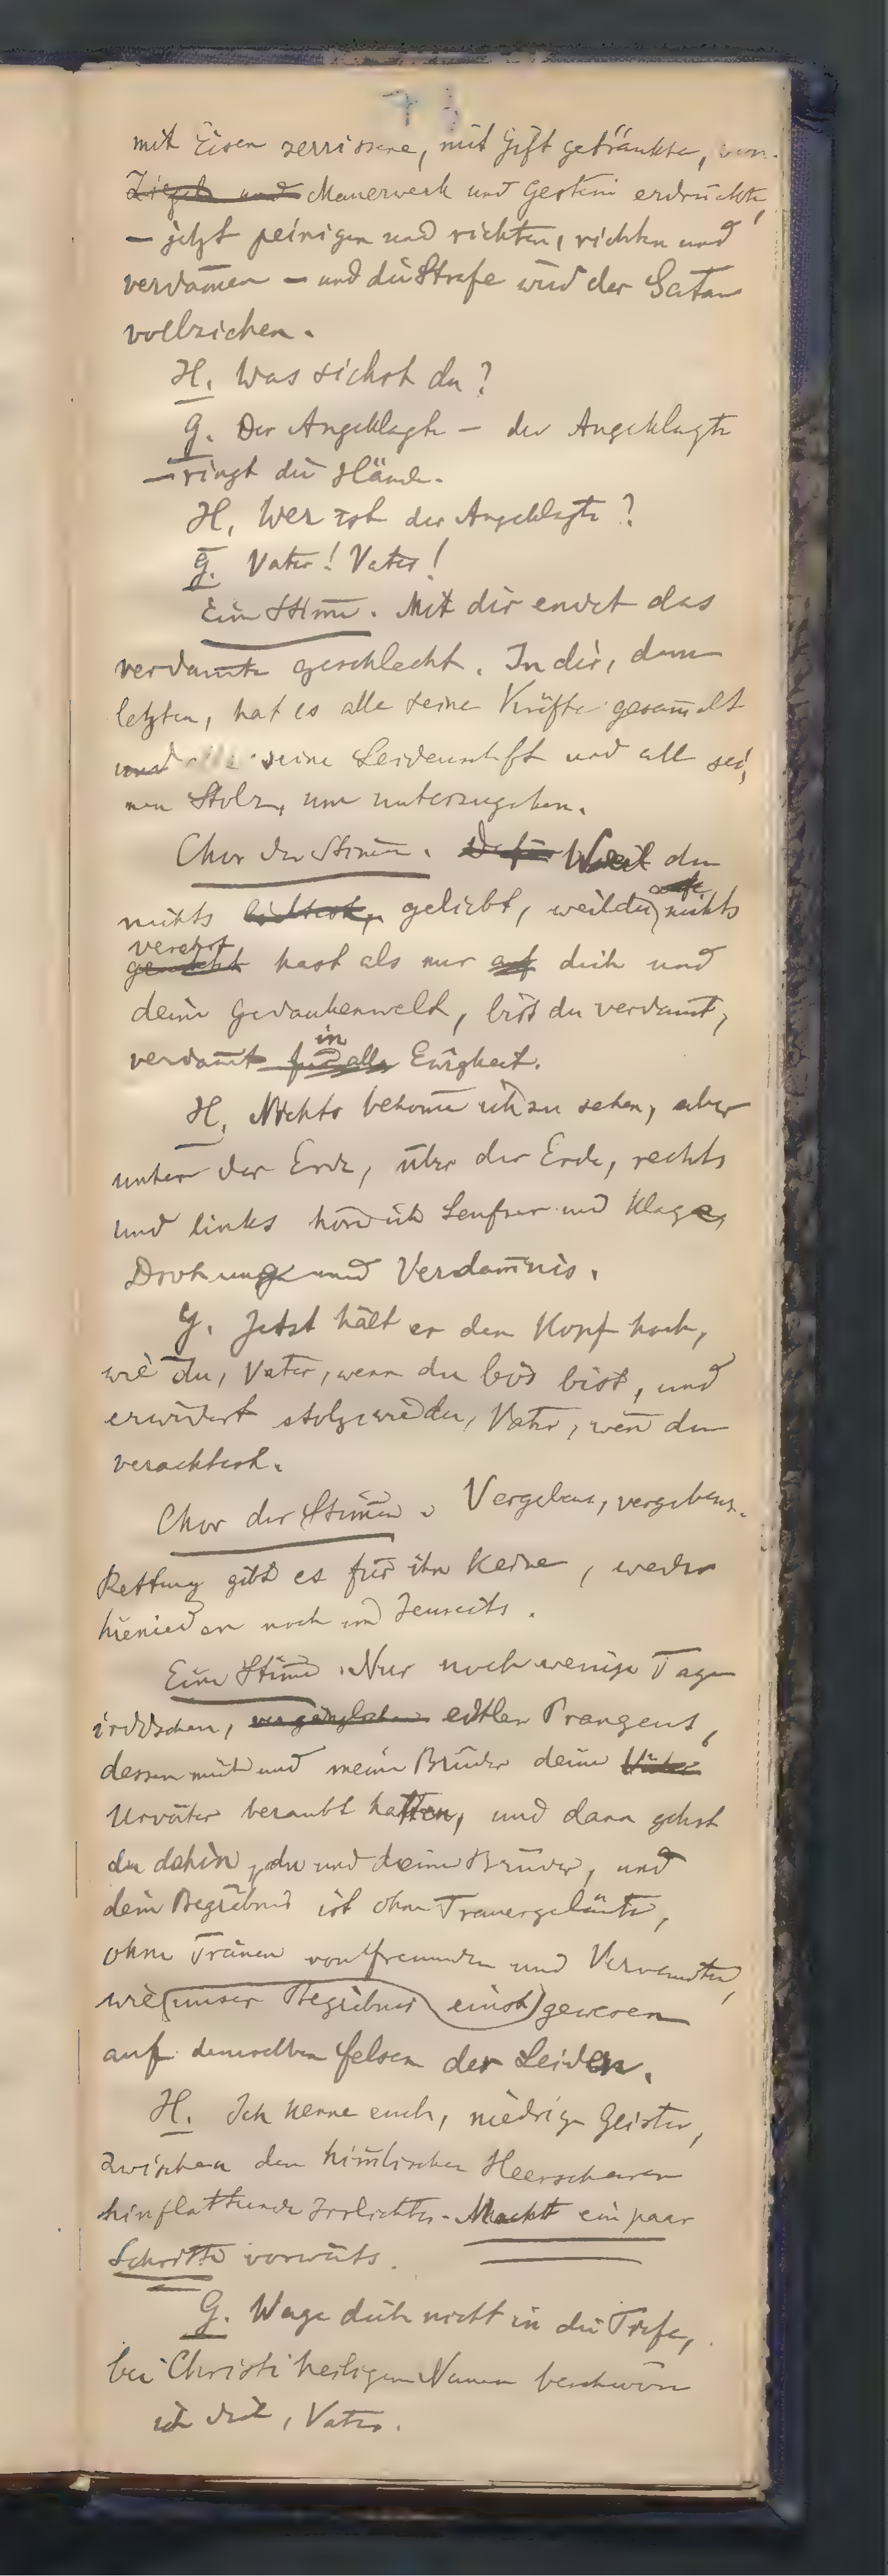 mit Eisen zerrissene, mit Gift getränkte, von
Ziegeln und Mauerwerk und Gestein erdrückte,
— jetzt peinigen und richten, richten und
verdam̅en — und die Strafe wird der Satan
vollziehen.
H. Was siehst du?
G. Der Angeklagte — der Angeklagte
— ringt die Hände.
H. Wer ist der Angeklagte?
G. Vater! Vater!
Eine Stim̅e. Mit dir endet das
verdam̅te Geschlecht. In dir, dem
letzten, hat es alle seine Kräfte gesam̅elt
und alle seine Leidenschaft und all sei,
nen Stolz, um unterzugehen.
Chor der Stim̅en. Dafür Weil du
nichts geliebt, weil du nichts
verehrt
hast als nur auf dich und
deine Gedankenwelt, bist du verdam̅t,
in
verdam̅t für alle Ewigkeit.
H. Nichts bekom̅e ich zu sehen, aber
unter der Erde, über der Erde, rechts
und links höre ich Seufzer und Klage,
Drohung und Verdam̅nis.
G. Jetzt hält er den Kopf hoch,
wie du, Vater, wenn du bös bist, und
erwidert stolz wie du, Vater, wen̅ du
verachtest.
Chor der Stim̅en. Vergebens, vergebens.
Rettung gibt es für ihn keine, weder
hienieden noch im Jenseits.
Eine Stim̅e. Nur noch wenige Tage
irdischen, vergänglichen eitlen Prangens,
dessen mich und meine Brüder deine Väter
Urväter beraubt hatten, und dann gehst
du dahin, du und deine Brüder, und
dein Begräbnis ist ohne Trauergeläute,
ohne Tränen von Freunden und Verwandten,
wie unser Begräbnis einst gewesen
auf demselben Felsen der Leiden.
H. Ich kenne euch, niedrige Geister,
zwischen den him̅lischen Heerscharen
hinflatternde Irrlichter. Macht ein paar
Schritte vorwärts.
G. Wage dich nicht in die Tiefe,
bei Christi heiligem Namen beschwöre
ich dich, Vater.